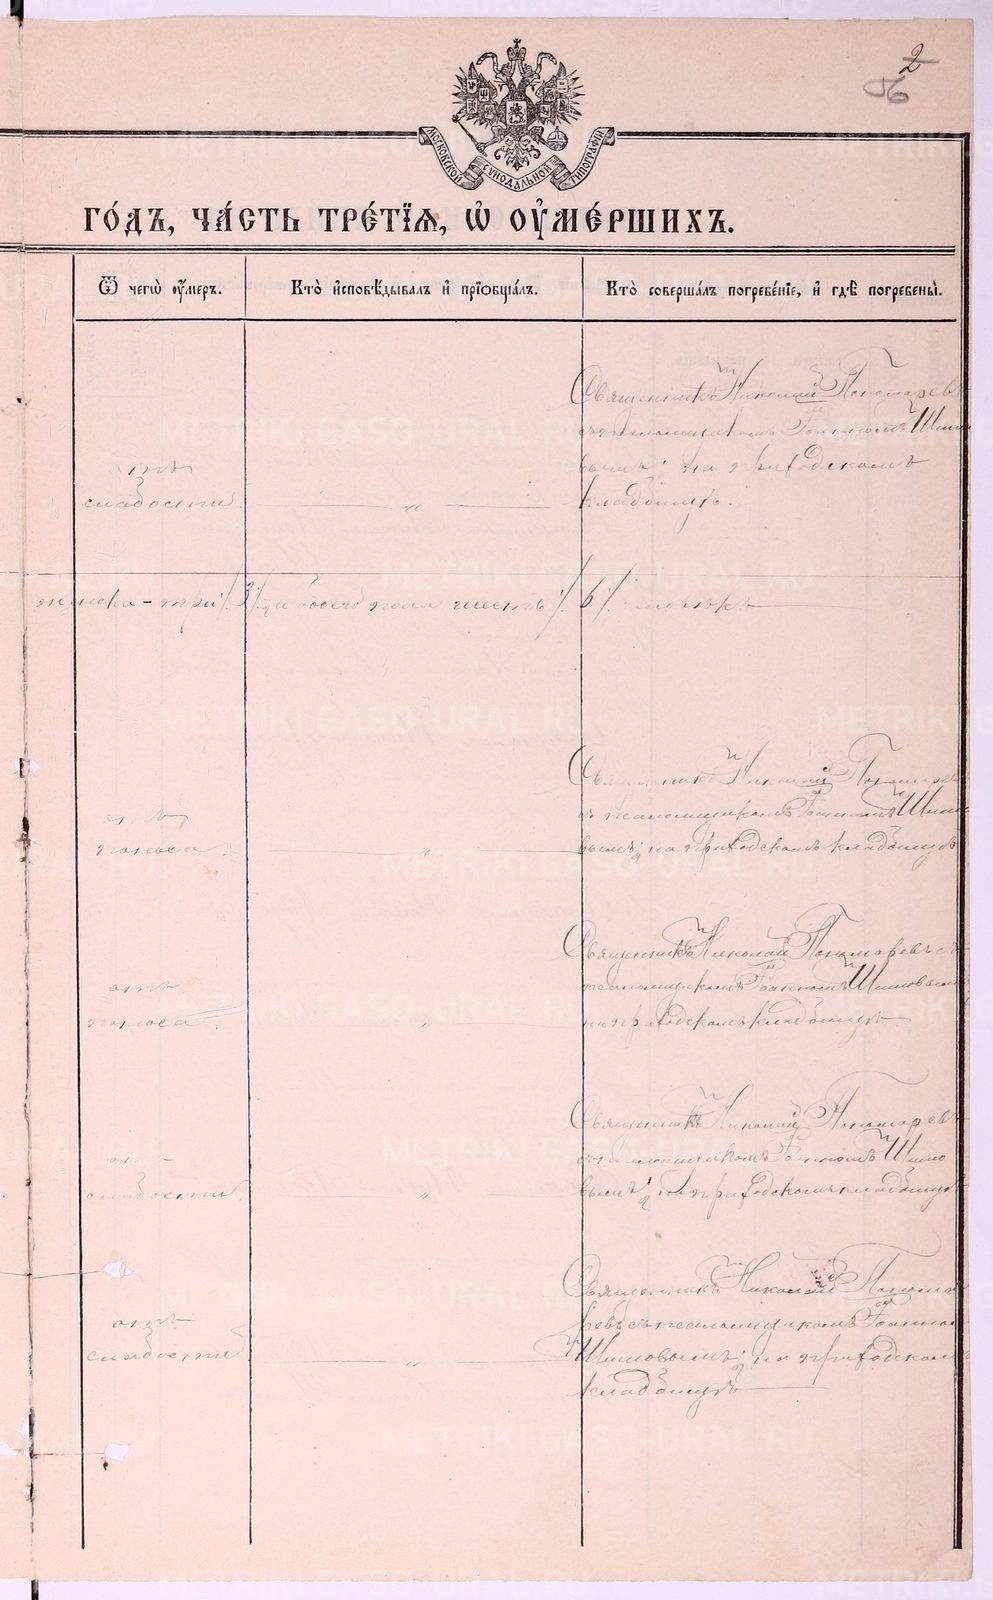 2
56
МОСКОВСКОЙ СѴНОДАЛЬНОЙ ТИПОГРАФІИ
ГО́ДЪ, ЧА́СТЬ ТРЕ́ТЇѦ, Ѡ҆ ОУ҆МЕ́РШИХЪ.
Ѿ чегѡ̀ оу҆́меръ.
Кто̀ и҆сповѣ́дывалъ и҆ прїѡбща́лъ.
Кто̀ соверша́лъ погребе́нїе, и҆ гдѣ̀ погребены̀.
Священникъ Николай Пономаревъ
съ псаломщикомъ Іоанномъ Шишо
вымъ; на приходскомъ
кладбищѣ.
отъ
слабости. „
женска - три /3/, а обоего пола шесть /6/ человѣкъ
Священникъ Николай Пономаревъ
съ псаломщикомъ Іоанномъ Шишо
вымъ; на приходскомъ кладбищѣ
отъ
поноса. „
Священникъ Николай Пономаревъ съ
псаломщикомъ Іоанномъ Шишовымъ
на приходскомъ кладбищѣ
отъ
поноса. „
Священникъ Николай Пономаревъ
съ псаломщикомъ Іоанномъ Шишо
вымъ; на приходскомъ кладбищѣ
отъ
слабости. „
Священникъ Николай Понома
ревъ съ псаломщикомъ Іоанномъ
Шишовымъ; на приходскомъ
кладбищѣ
отъ
слабости. „
METRIKI.GASO-URAL.RU